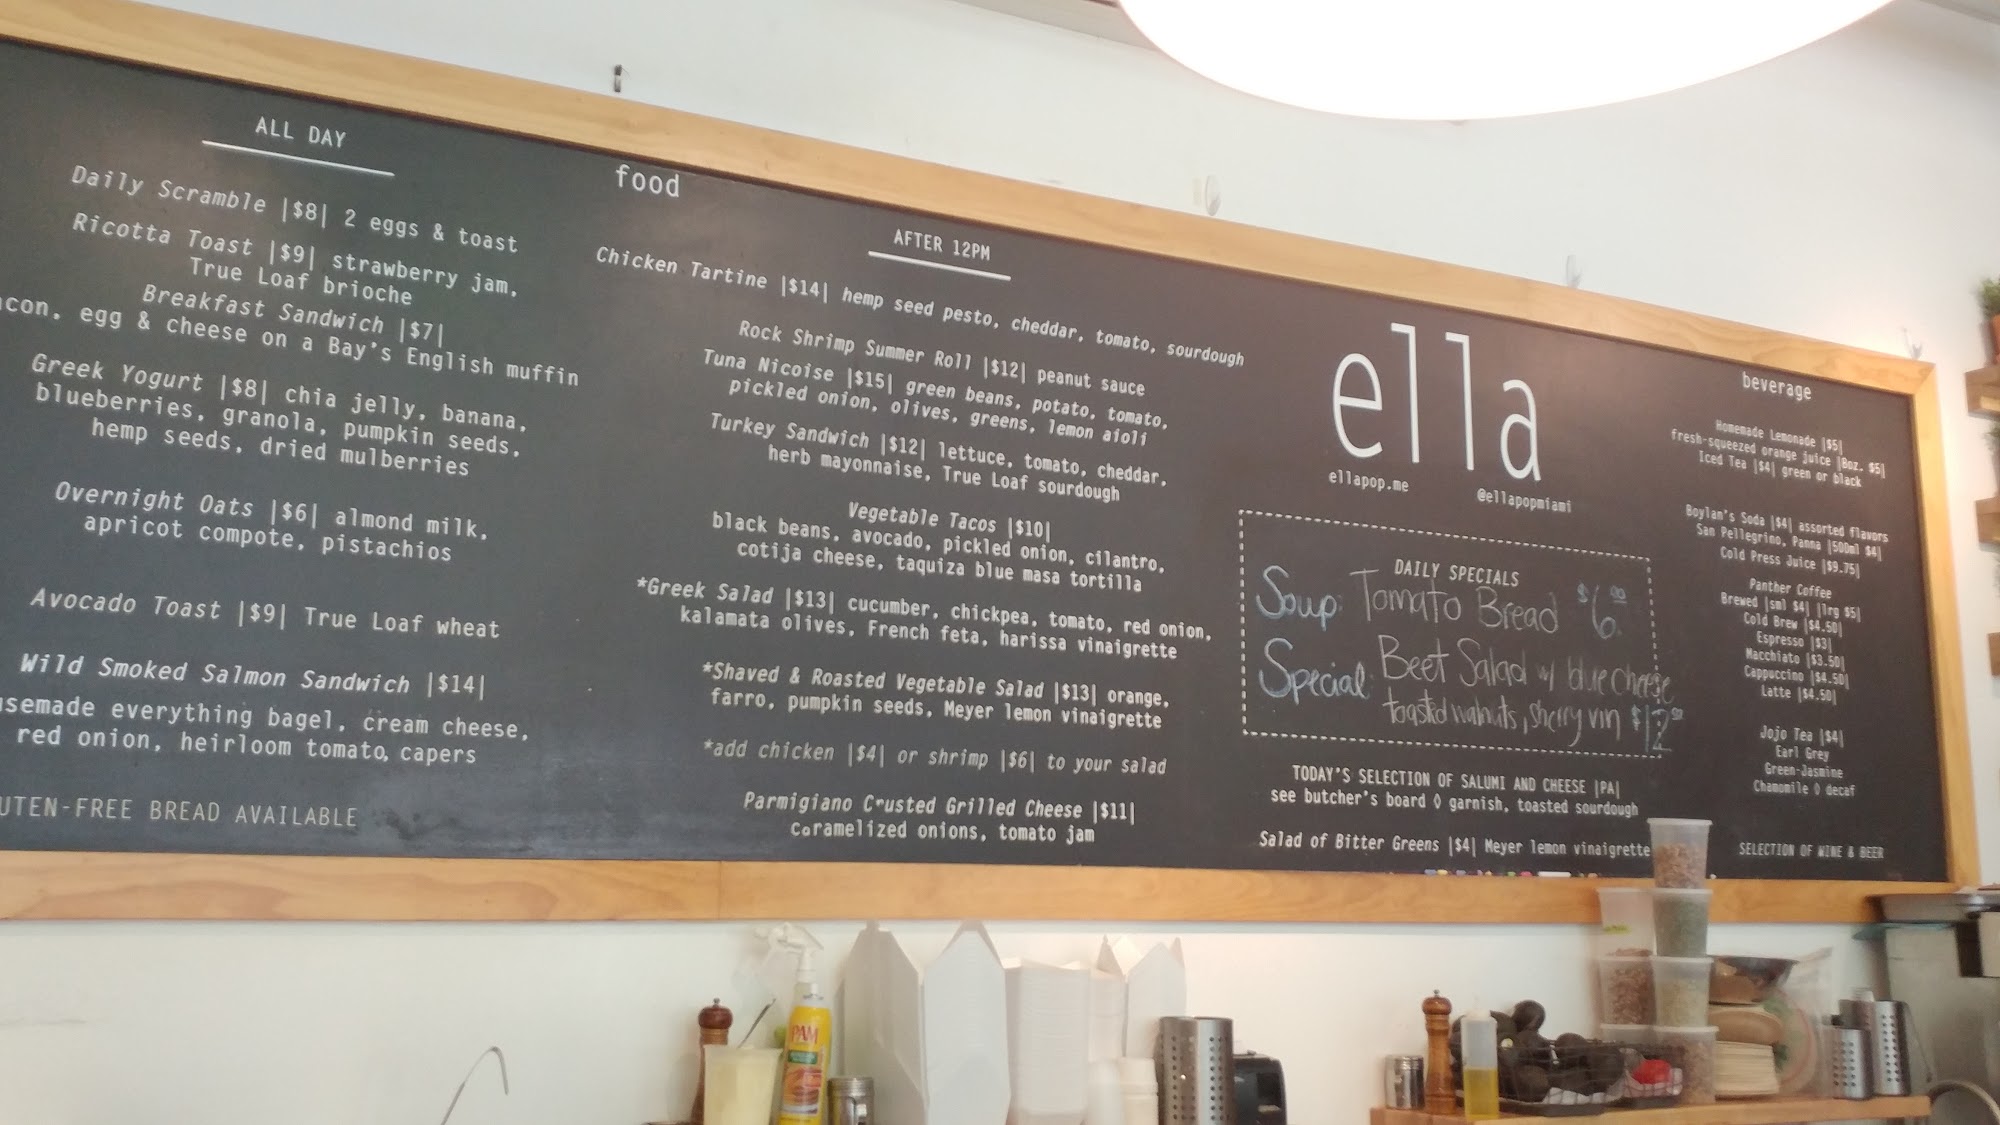 ALL DAY
Daily Scramble |$8| 2 eggs & toast
Ricotta Toast |$9| strawberry jam,
True Loaf brioche
Breakfast Sandwich |$7|
egg & cheese on a Bay's English muffin
Greek Yogurt |$8| chia jelly, banana,
blueberries, granola, pumpkin seeds,
hemp seeds, dried mulberries
Overnight Oats |$6| almond milk,
apricot compote, pistachios
Avocado Toast |$9| True Loaf wheat
Wild Smoked Salmon Sandwich |$14|
everything bagel, cream cheese,
red onion, heirloom tomato, capers
BREAD AVAILABLE
food
AFTER 12PM
Chicken Tartine |$14| hemp seed pesto, cheddar, tomato, sourdough
Rock Shrimp Summer Roll |$12| peanut sauce
Tuna Nicoise |$15| green beans, potato, tomato,
pickled onion, olives, greens, lemon aioli
Turkey Sandwich |$12| lettuce, tomato, cheddar,
herb mayonnaise, True Loaf sourdough
Vegetable Tacos |$10|
black beans, avocado, pickled onion, cilantro,
cotija cheese, taquiza blue masa tortilla
*Greek Salad |$13| cucumber, chickpea, tomato, red onion,
kalamata olives, French feta, harissa vinaigrette
*Shaved & Roasted Vegetable Salad |$13| orange,
farro, pumpkin seeds, Meyer lemon vinaigrette
*add chicken |$4| or shrimp |$6| to your salad
Parmigiano Crusted Grilled Cheese |$11|
caramelized onions, tomato jam
ella
ellapop.me @ellapopmiami
DAILY SPECIALS
Soup: Tomato Bread $6.00
Special: Beet Salad w/ blue cheese
toasted walnuts, sherry vin $12.00
TODAY'S SELECTION OF SALUMI AND CHEESE |PA|
see butcher's board ◊ garnish, toasted sourdough
Salad of Bitter Greens |$4| Meyer lemon vinaigrette
beverage
Homemade Lemonade |$5|
fresh-squeezed orange juice |8oz. $5|
Iced Tea |$4| green or black
Boylan's Soda |$4| assorted flavors
San Pellegrino, Panna |500ml $4|
Cold Press Juice |$9.75|
Panther Coffee
Brewed |sml $4| |lrg $5|
Cold Brew |$4.50|
Espresso |$3|
Macchiato |$3.50|
Cappuccino |$4.50|
Latte |$4.50|
Jojo Tea |$4|
Earl Grey
Green-Jasmine
Chamomile ◊ decaf
SELECTION OF WINE & BEER
PAM